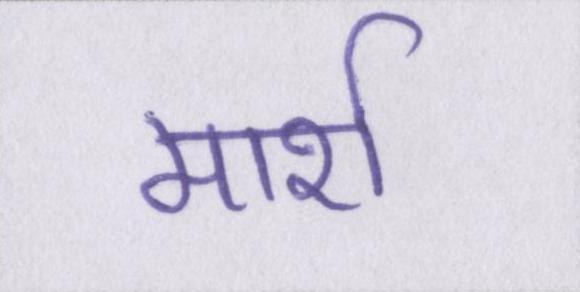 मार्श